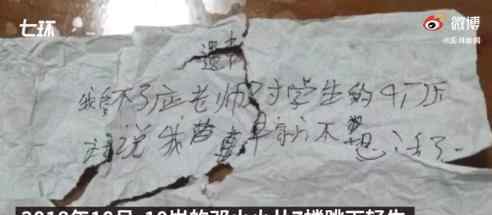 七环
微博
遗书
我受不了老师对学生的打压
说我早就不想活了
年10月 10岁的邓小小从7楼跳下轻生